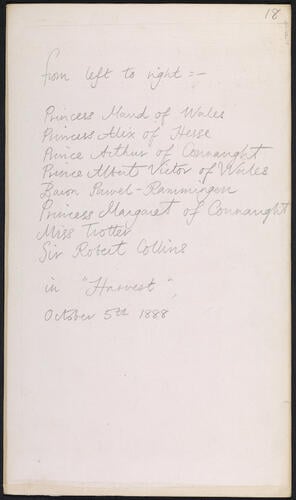 18
from left to right :-
Princess Maud of Wales
Princess Alix of Hesse
Prince Arthur of Connaught
Prince Albert Victor of Wales
Baron Pawel-Rammingen
Princess Margaret of Connaught
Miss Trotter
Sir Robert Collins
in "Harvest",
October 5th 1888